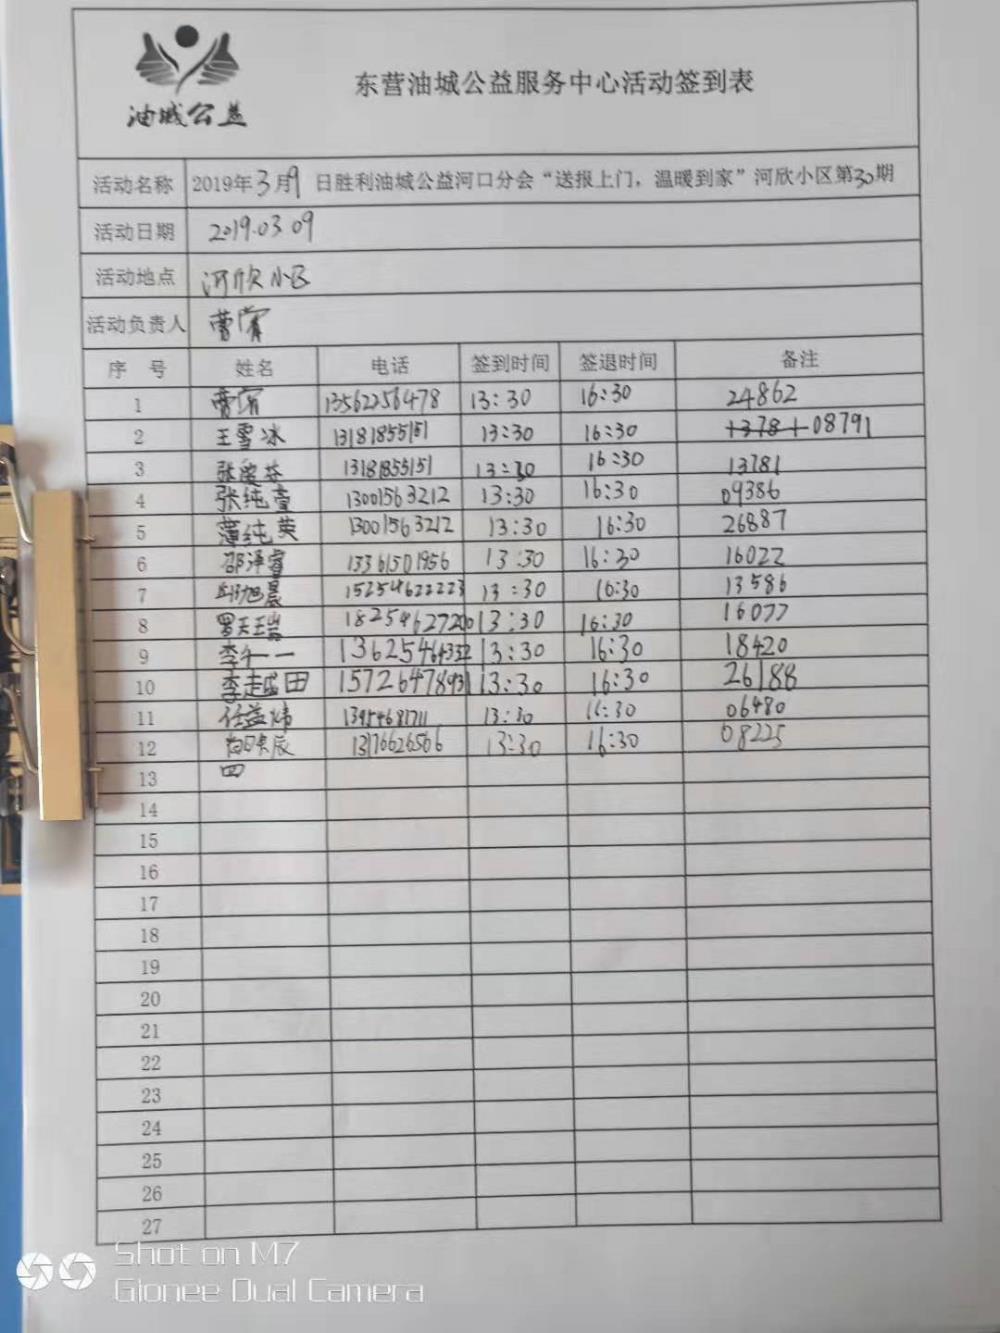 油城公益
东营油城公益服务中心活动签到表
活动名称 2019年3月9日胜利油城公益河口分会“送报上门，温暖到家”河欣小区第30期
活动日期 2019.03.09
活动地点 河欣小区
活动负责人
序号 姓名 电话 签到时间 签退时间 备注
1 13562256478 13:30 16:30 24862
2 王雪冰 13181855151 13:30 16:30 08791
3 13181855151 13:30 16:30 13781
4 张纯萱 13001563212 13:30 16:30 09386
5 薄纯英 13001563212 13:30 16:30 26887
6 邵泽睿 13361501956 13:30 16:30 16022
7 邱旭晨 15254622223 13:30 16:30 13586
8 18254627200 13:30 16:30 16077
9 13:30 16:30 18420
10 李越田 13:30 16:30 26188
11 任益炜 13:30 16:30 06480
12 13176626566 13:30 16:30 08225
13 四
14
15
16
17
18
19
20
21
22
23
24
25
26
27
Shot on M7
Gionee Dual Camera